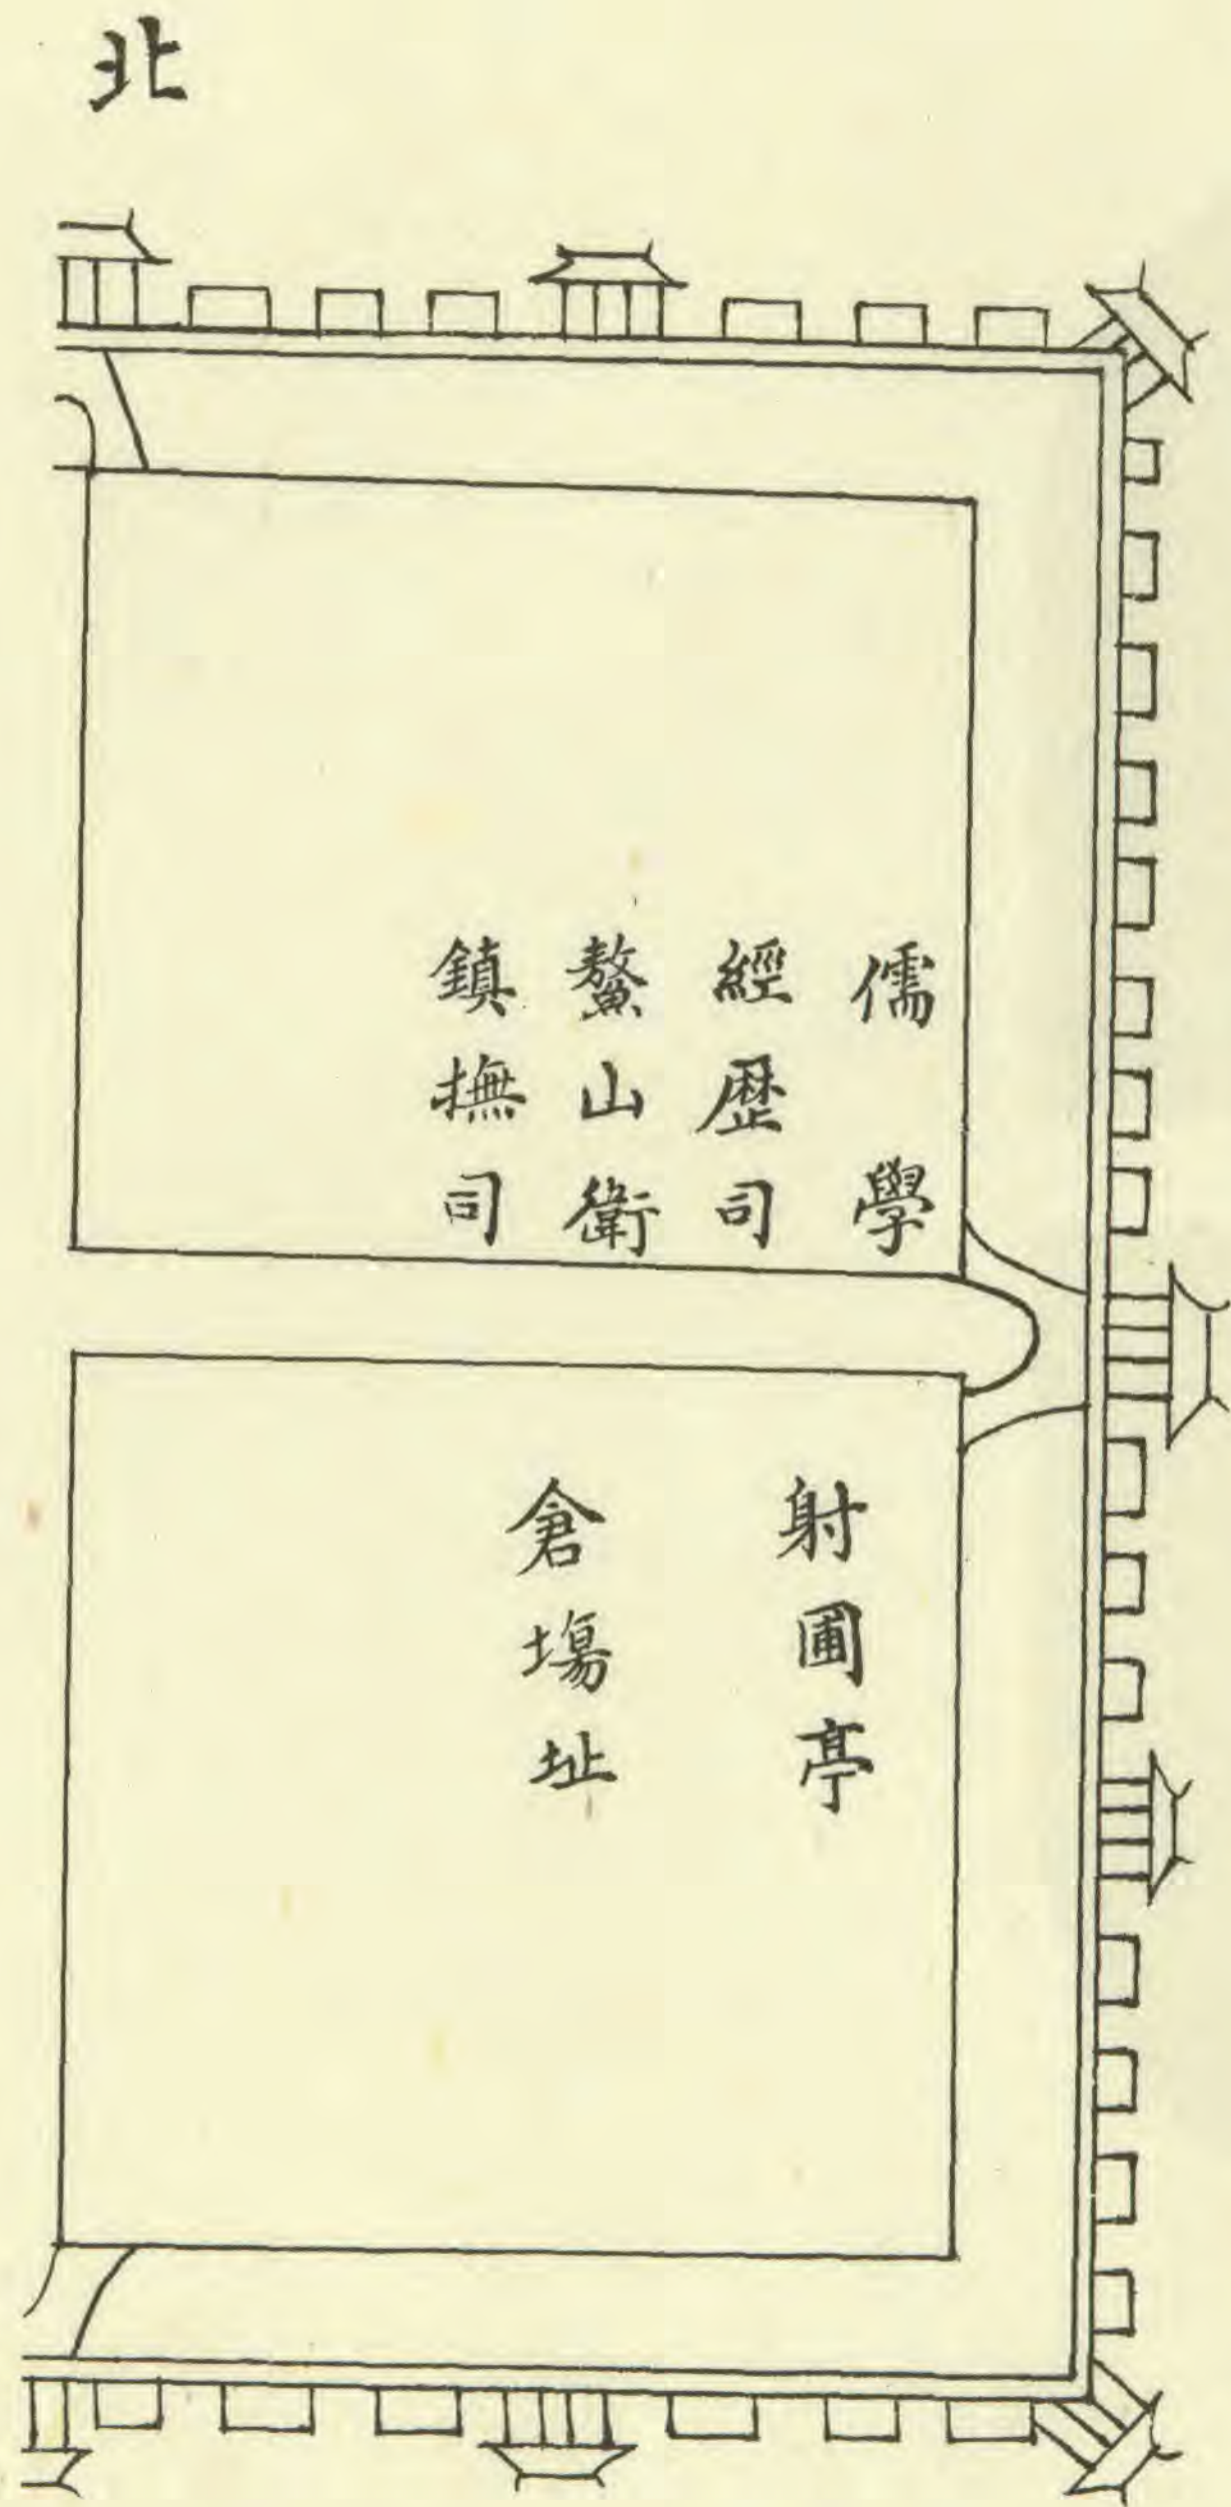 北
儒學
經歷司
鰲山衛
鎮撫司
射圃亭
倉塲址